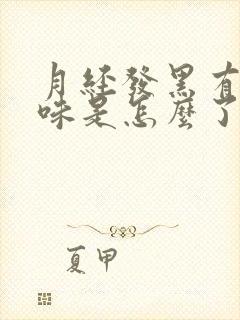 月經發黑有
味是怎麼了
夏甲